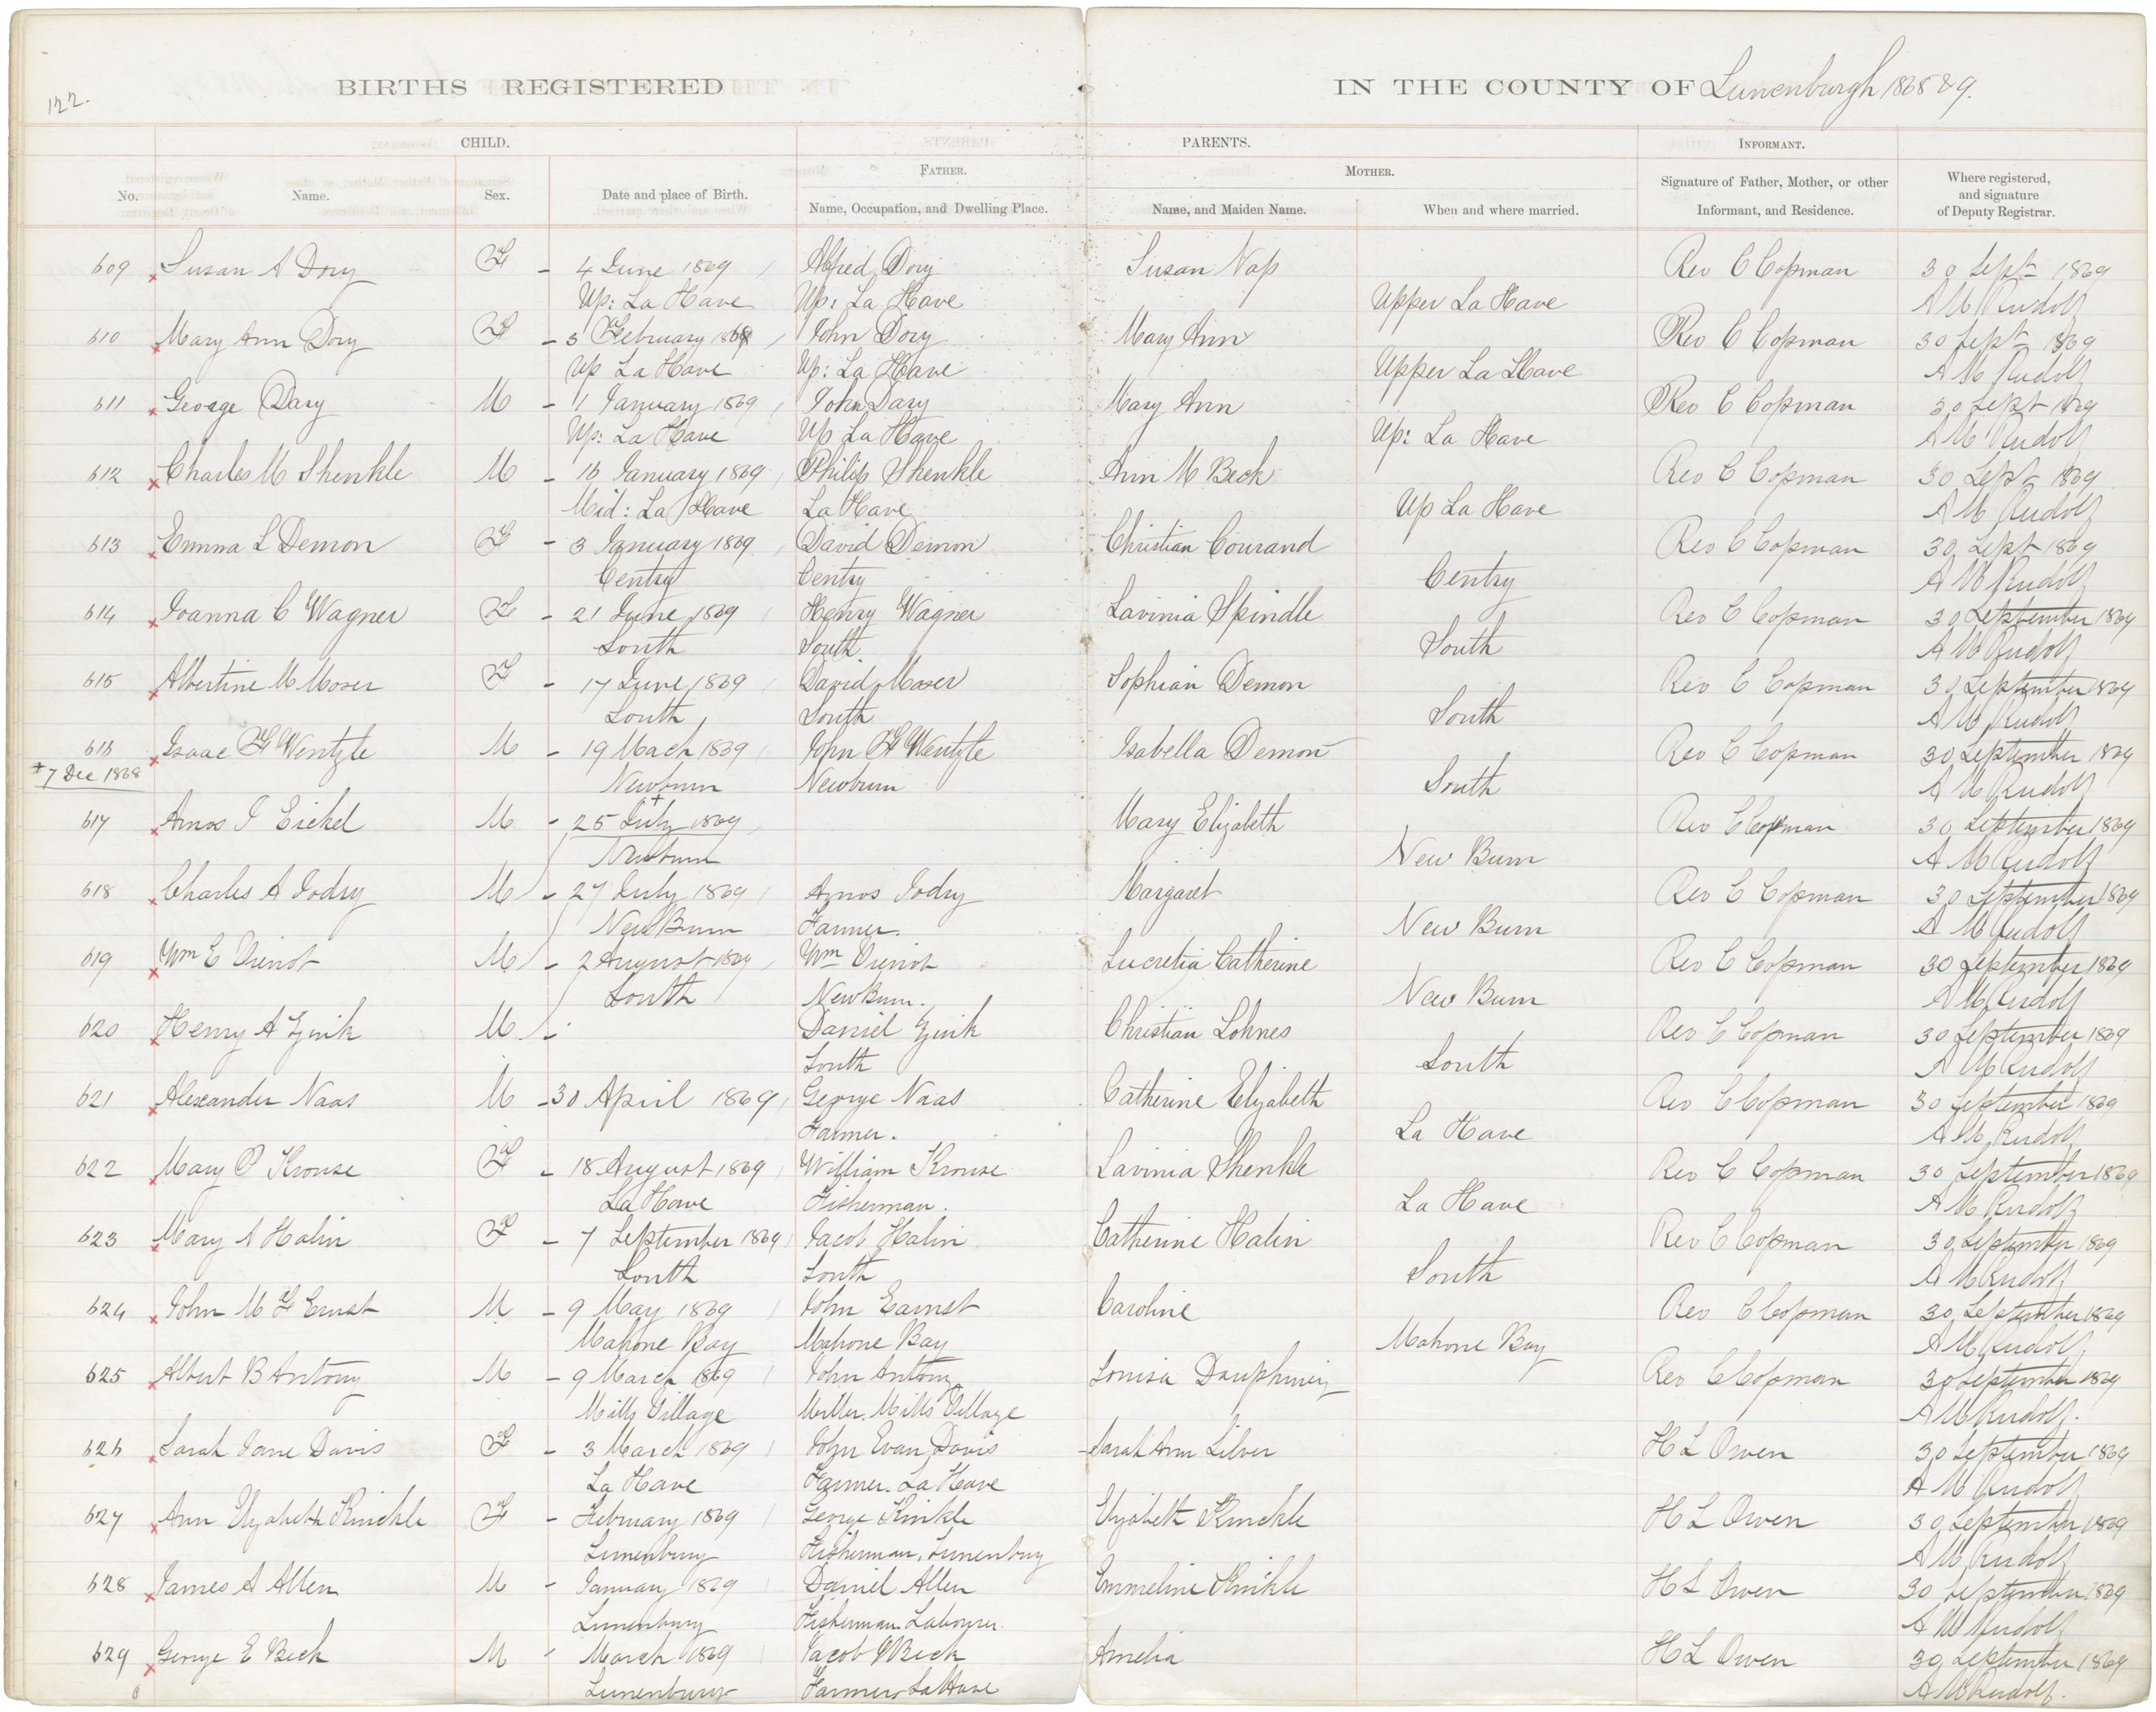 122.
BIRTHS REGISTERED IN THE COUNTY OF Lunenburgh 1868 & 9.
CHILD. PARENTS. INFORMANT.
FATHER. MOTHER.
No. Name. Sex. Date and place of Birth. Name, Occupation, and Dwelling Place. Name, and Maiden Name. When and where married. Signature of Father, Mother, or other Informant, and Residence. Where registered, and signature of Deputy Registrar.
609 Susan A Dory F - 4 June 1869 Alfred Dory Susan Nap Rev C Copman 30 Sept 1869
Up: La Have Up: La Have Upper La Have A M Rudolf
610 Mary Ann Dory F - 5 February 1869 John Dory Mary Ann Rev C Copman 30 Sept 1869
Up La Have Up: La Have Upper La Have A M Rudolf
611 George Dary M - 1 January 1869 John Dary Mary Ann Rev C Copman 30 Sept 1869
Up: La Have Up La Have Up: La Have A M Rudolf
612 Charles M Shenkle M - 16 January 1869 Philip Shenkle Ann M Beck Rev C Copman 30 Sept 1869
Mid: La Have La Have Up La Have A M Rudolf
613 Emma L Demon F - 3 January 1869 David Demon Christian Courand Rev C Copman 30 Sept 1869
Centry Centry Centry A M Rudolf
614 Joanna C Wagner F - 21 June 1869 Henry Wagner Lavinia Spindle Rev C Copman 30 September 1869
South South South A M Rudolf
615 Albertine M Moser F - 17 June 1869 David Moser Sophian Demon Rev C Copman 30 September 1869
South South South A M Rudolf
616 Isaac H Wentzle M - 19 Mach 1869 John H Wentzle Isabella Demon Rev C Copman 30 September 1869
+ 7 Dec 1868 Newburn Newburn South A M Rudolf
617 Amos J Eickel M - 25 July + 1869 Mary Elizabeth Rev C Copman 30 September 1869
Newburn New Burn A M Rudolf
618 Charles A Jodry M - 27 July 1869 Amos Jodry Margaret Rev C Copman 30 September 1869
New Burn Farmer. New Burn A M Rudolf
619 Wm E Vienot M - 2 August 1869 Wm Vienot Lucretia Catherine Rev C Copman 30 September 1869
South New Burn. New Burn A M Rudolf
620 Henry A Zwik M - Daniel Zwik Christian Lohnes Rev C Copman 30 September 1869
South South A M Rudolf
621 Alexander Naas M - 30 April 1869 George Naas Catherine Elizabeth Rev C Copman 30 September 1869
Farmer. La Have A M Rudolf
622 Mary P Krouse F - 18 August 1869 William Krouse Lavinia Shenkle Rev C Copman 30 September 1869
La Have Fisherman. La Have A M Rudolf
623 Mary A Halin F - 7 September 1869 Jacob Halin Catherine Halin Rev C Copman 30 September 1869
South South South A M Rudolf
624 John M F Ernst M - 9 May 1869 John Earnst Caroline Rev C Copman 30 September 1869
Mahone Bay Mahone Bay Mahone Bay A M Rudolf
625 Albert B Antony M - 9 March 1869 John Antony Louisa Dauphiney Rev C Copman 30 September 1869
Mills Village Miller. Mills Village A M Rudolf.
626 Sarah Jane Davis F - 3 March 1869 John Evan Davis Sarah Ann Silver H L Owen 30 September 1869
La Have Farmer. La Have A M Rudolf
627 Ann Elizabeth Kinckle F - February 1869 George Kinkle Elizabeth Kinckle H L Owen 30 September 1869
Lunenburg Fisherman, Lunenburg A M Rudolf
628 James A Allen M - January 1869 Daniel Allen Emmeline Kinkle H L Owen 30 September 1869
Lunenburg Fisherman Labourer. A M Rudolf
629 George E Beck M - March 1869 Jacob Beck Amelia H L Owen 30 September 1869
Lunenburg Farmer LaHave A M Rudolf.